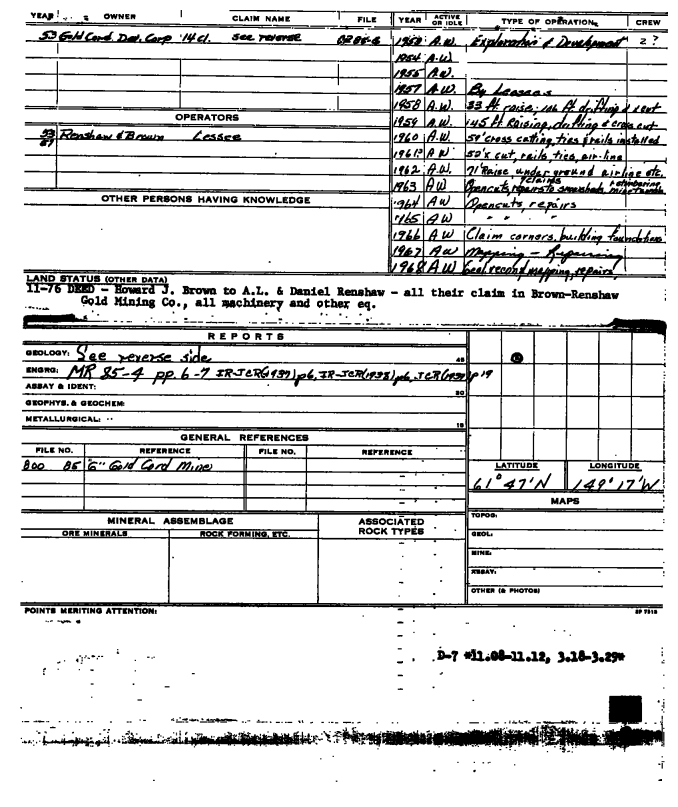 YEAR OWNER CLAIM NAME FILE YEAR ACTIVE OR IDLE TYPE OF OPERATION CREW
53 Gold Cord Dev. Corp 14 cl. see reverse 85-6 1953 A.W. Exploration & Development 2?
1954 A.W.
1955 A.W.
1957 A.W. By Lessees
1958 A.W. 33 ft raise; 106 ft drifting & x cut
OPERATORS
1959 A.W. 145 ft Raising, drifting & cross cut
53 57 Renshaw & Brown Lessee 1960 A.W. 50' cross cutting, ties & rails installed
1961 A W 50' x cut, rails, ties, air-line
1962 A.W. 71' Raise underground airline etc.
1963 A W Opencuts, repairs to snowsheds
OTHER PERSONS HAVING KNOWLEDGE
1964 A W Opencuts, repairs
1965 A W " " "
1966 A W Claim corners, building foundations
1967 A W Mapping - Repairing
1968 A W Geol. recon, mapping, repairs
LAND STATUS (OTHER DATA)
11-76 DEED - Howard J. Brown to A.L. & Daniel Renshaw - all their claim in Brown-Renshaw
Gold Mining Co., all machinery and other eq.
REPORTS
GEOLOGY: See reverse side
ENGRG: MR 85-4 pp. 6-7 IR-JCR(1937)p6, IR-JCR(1938)p6, JCR(1937)p19
ASSAY & IDENT:
GEOPHYS. & GEOCHEM:
METALLURGICAL:
GENERAL REFERENCES
FILE NO. REFERENCE FILE NO. REFERENCE
800 85 "G" Gold Cord Mine
LATITUDE LONGITUDE
61° 47' N 149° 17' W
MAPS
MINERAL ASSEMBLAGE ASSOCIATED ROCK TYPES
ORE MINERALS ROCK FORMING, ETC.
TOPOG:
GEOL:
MINE:
ASSAY:
OTHER (& PHOTOS)
POINTS MERITING ATTENTION:
D-7 *11.08-11.12, 3.18-3.29*